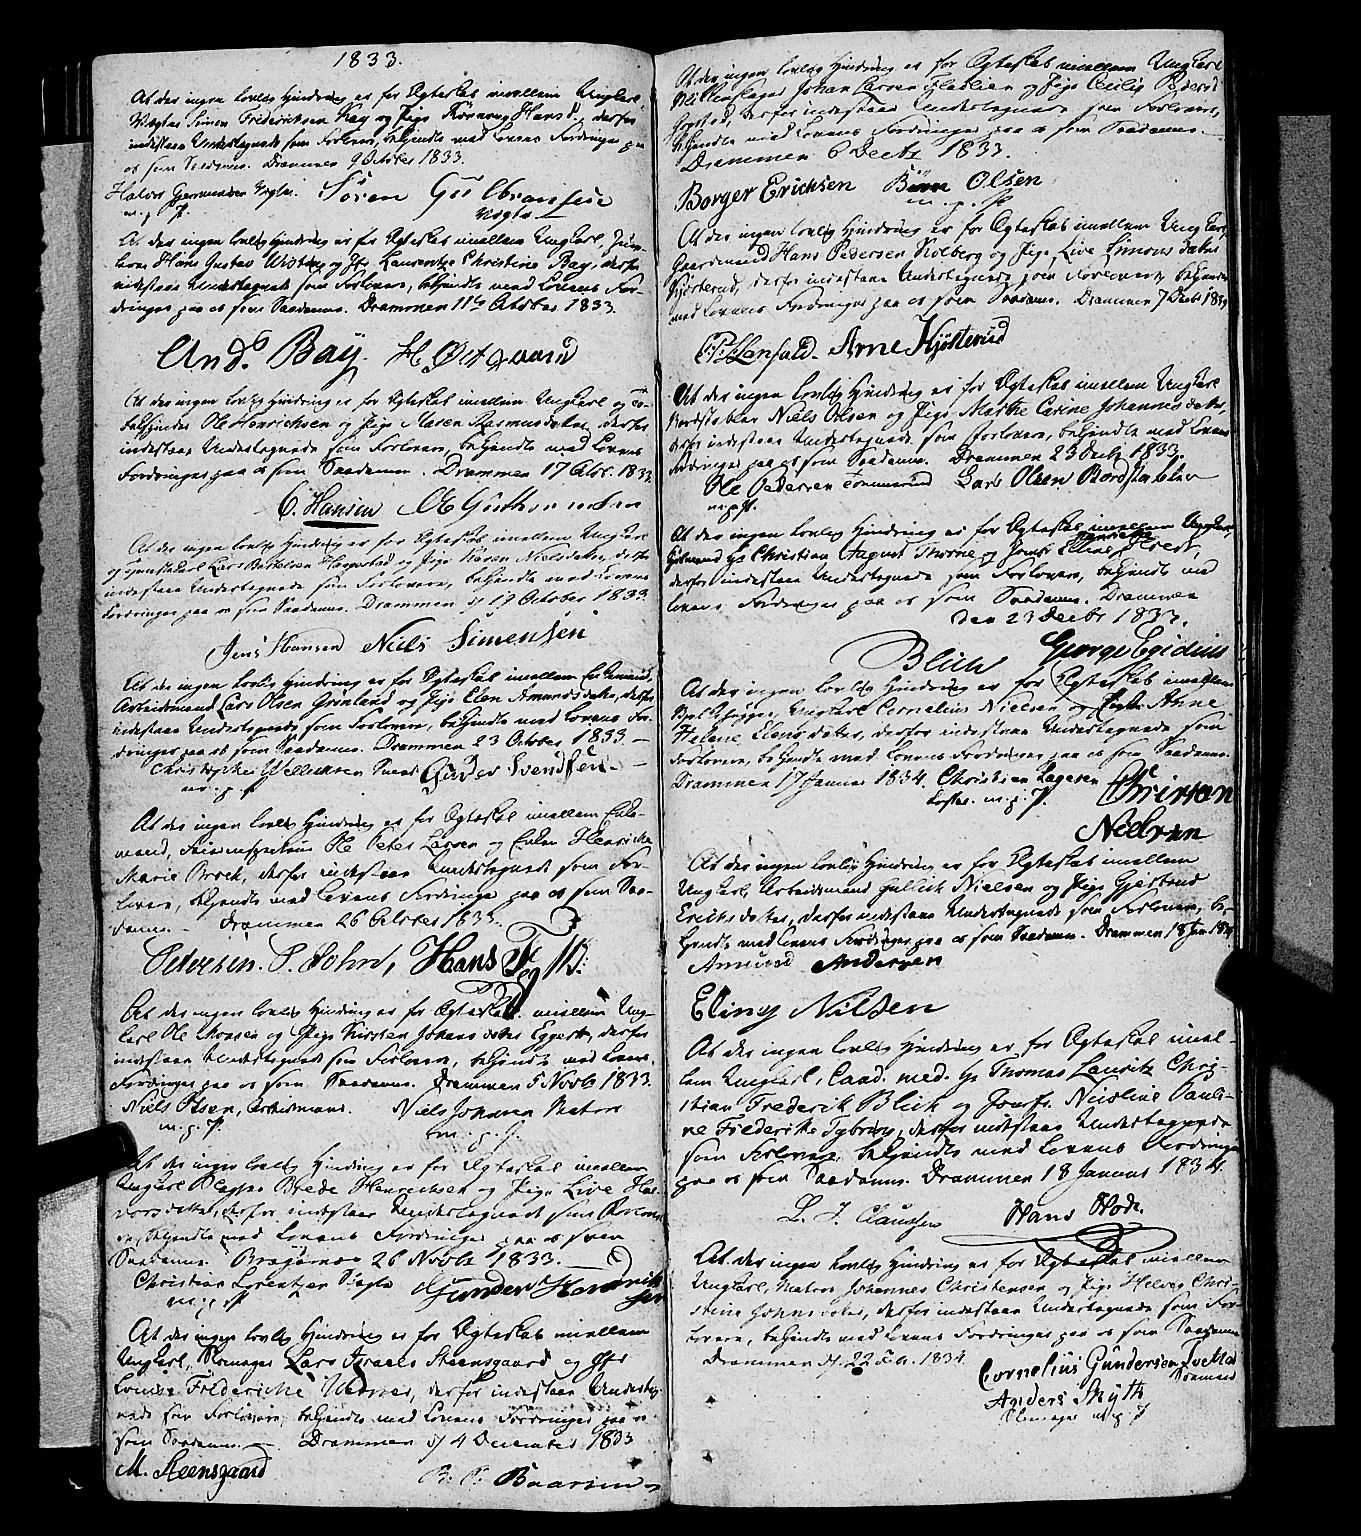 1833.
At der ingen lovlig Hindring er for Ægteskab imellem Ungkarl
Vægter Simon Frederiksen Kay og Pige Hansd., derfor
indestaae Undertegnede som Forlovere, bekjendte med Lovens Fordringer paa
os som Saadanne. Drammen 9 October 1833.
Halvor Gjermundsen Vægter. Søren Gulbransen
m. p. P. Vægter
At der ingen lovlig Hindring er for Ægteskab imellem Ungkarl,
Hans Gustav og Jfr Laurentze Christine Bay, derfor
indestaae Undertegnede som Forlovere, bekjendte med Lovens For-
dringer paa os som Saadanne. Drammen 11te October 1833.
And. Bay. H. Østgaard
At der ingen lovlig Hindring er for Ægteskab imellem Ungkarl og To-
bakspinder Ole Henrichsen og Pige Maren Rasmusdatter, derfor
indestaae Undertegnede som Forlovere, bekjendte med Lovens
Fordringer paa os som Saadanne. Drammen 17 Octbr. 1833.
C. Hansen
At der ingen lovlig Hindring er for Ægteskab imellem Ungkarl
og Lars Bertelsen og Pige Karen Nielsdatter, derfor
indestaae Undertegnede som Forlovere, bekjendte med Lovens
Fordringer paa os som Saadanne. Drammen d 19 October 1833
Jens Hansen Niels Simensen
At der ingen lovlig Hindring er for Ægteskab imellem Enkemand,
Arbeidsmand Lars Olsen Grønland og Pige Elen Amundsdatter, derfor
indestaae Undertegnede som Forlovere, bekjendte med Lovens For-
dringer paa os som Saadanne. Drammen 23 October 1833.
Christopher Gunder Svendsen
m. p. P.
At der ingen lovlig Hindring er for Ægteskab imellem Enke-
mand, Ole Peter Larsen og Enken Henricke
Marie Brock, derfor indestaae Undertegnede som For-
lovere, bekjendte med Lovens Fordringer paa os som Saa-
danne. Drammen 26 October 1833.
Petersen. P. Sohn, Hans
At der ingen lovlig Hindring er for Ægteskab imellem Ung-
karl Ole Monsen og Pige Kirsten Johansdatter Eggert, derfor
indestaae Undertegnede som Forlovere, bekjendte med Lovens
Fordringer paa os som Saadanne. Drammen 5 Novbr 1833.
Niels Olsen, Arbeidsmand. Niels Johansen Matros
m. p. P. m. p. P.
At der ingen lovlig Hindring er for Ægteskab imellem
Ungkarl Brede Henrichsen og Pige Live Hal-
vorsdatter, derfor indestaae Undertegnede som Forlove-
re, bekjendte med Lovens Fordringer paa os som
Saadanne. Bragernæs 26 Novbr 1833.
Christian Lorentzen Gunder Hendrik
m. p. P. sen
At der ingen lovlig Hindring er for Ægteskab imellem
Ungkarl, Skomager Lars Israels Steensgaard og Jfr
Lovise Frederiche Werner, derfor indestaae Underteg-
nede som Forlovere, bekjendte med Lovens Fordringer paa os
som Saadanne. Drammen d 4 December 1833
M. Steensgaard B. P. Baarsen
At der ingen lovlig Hindring er for Ægteskab imellem Ungkarl
Johan Larsen og Pige Cecilie Pedersd
derfor indestaae Undertegnede som Forlovere,
bekjendte med Lovens Fordringer paa os som Saadanne.
Drammen 6 Decbr 1833.
Borger Erichsen Olsen
m. p. P.
At der ingen lovlig Hindring er for Ægteskab imellem Ungkarl,
Gaardmand Hans Pedersen Solberg og Pige Live Simonsdatter
Hjösterud, derfor indestaae Undertegnede som Forlovere, bekjendte
med Lovens Fordringer paa os som Saadanne. Drammen 7 Decbr 1833
Arne Hjösterud
At der ingen lovlig Hindring er for Ægteskab imellem Ungkarl
Bordstabler Niels Olsen og Pige Marthe Carine Johannesdatter,
derfor indestaae Undertegnede som Forlovere, bekjendte med Lovens
Fordringer paa os som Saadanne. Drammen 23 Decbr 1833.
Ole Pedersen Lars Olsen Bordstabler
m. p. P.
At der ingen lovlig Hindring er for Ægteskab imellem Ungkarl,
Christian August Thorne og Jomfr Eline
derfor indestaae Undertegnede som Forlovere, bekjendte med
Lovens Fordringer paa os som Saadanne. Drammen
den 23 Decbr 1833.
Blich Georg Egidius
At der ingen lovlig Hindring er for Ægteskab imellem
Ungkarl Cornelius Nielsen og Anne
Helene Elensdatter, derfor indestaae Undertegnede som
Forlovere, bekjendte med Lovens Fordringer paa os som Saadanne.
Drammen 17 Januar 1834. Christian Lagesen
m. p. P.
Nielsen
At der ingen lovlig Hindring er for Ægteskab imellem
Ungkarl, Arbeidsmand Gullick Nielsen og Pige Gjertrud
Erichsdatter, derfor indestaae Undertegnede som Forlovere, be-
kjendte med Lovens Fordringer paa os som Saadanne. Drammen 18 Jan 1834
Amund Andersen
Eling Nilsen
At der ingen lovlig Hindring er for Ægteskab imel-
lem Ungkarl, Cand. med. Hr Thomas Lauritz Chri-
stian Frederik Blich og Jomfr. Nicoline Pauli-
ne Frederikke Dybvig, derfor indestaae Undertegnede
som Forlovere, bekjendte med Lovens Fordringer
paa os som Saadanne. Drammen 18 Januar 1834.
L. J. Claussen Hans
At der ingen lovlig Hindring er for Ægteskab imellem
Ungkarl, Matros Johannes Christensen og Pige Helene Chri-
stine Johnsdatter, derfor indestaae Undertegnede som For-
lovere, bekjendte med Lovens Fordringer paa os som Saadanne
Drammen d. 22 Feb. 1834.
Cornelius Gundersen
Anders Skytte
Skomager m. p. P